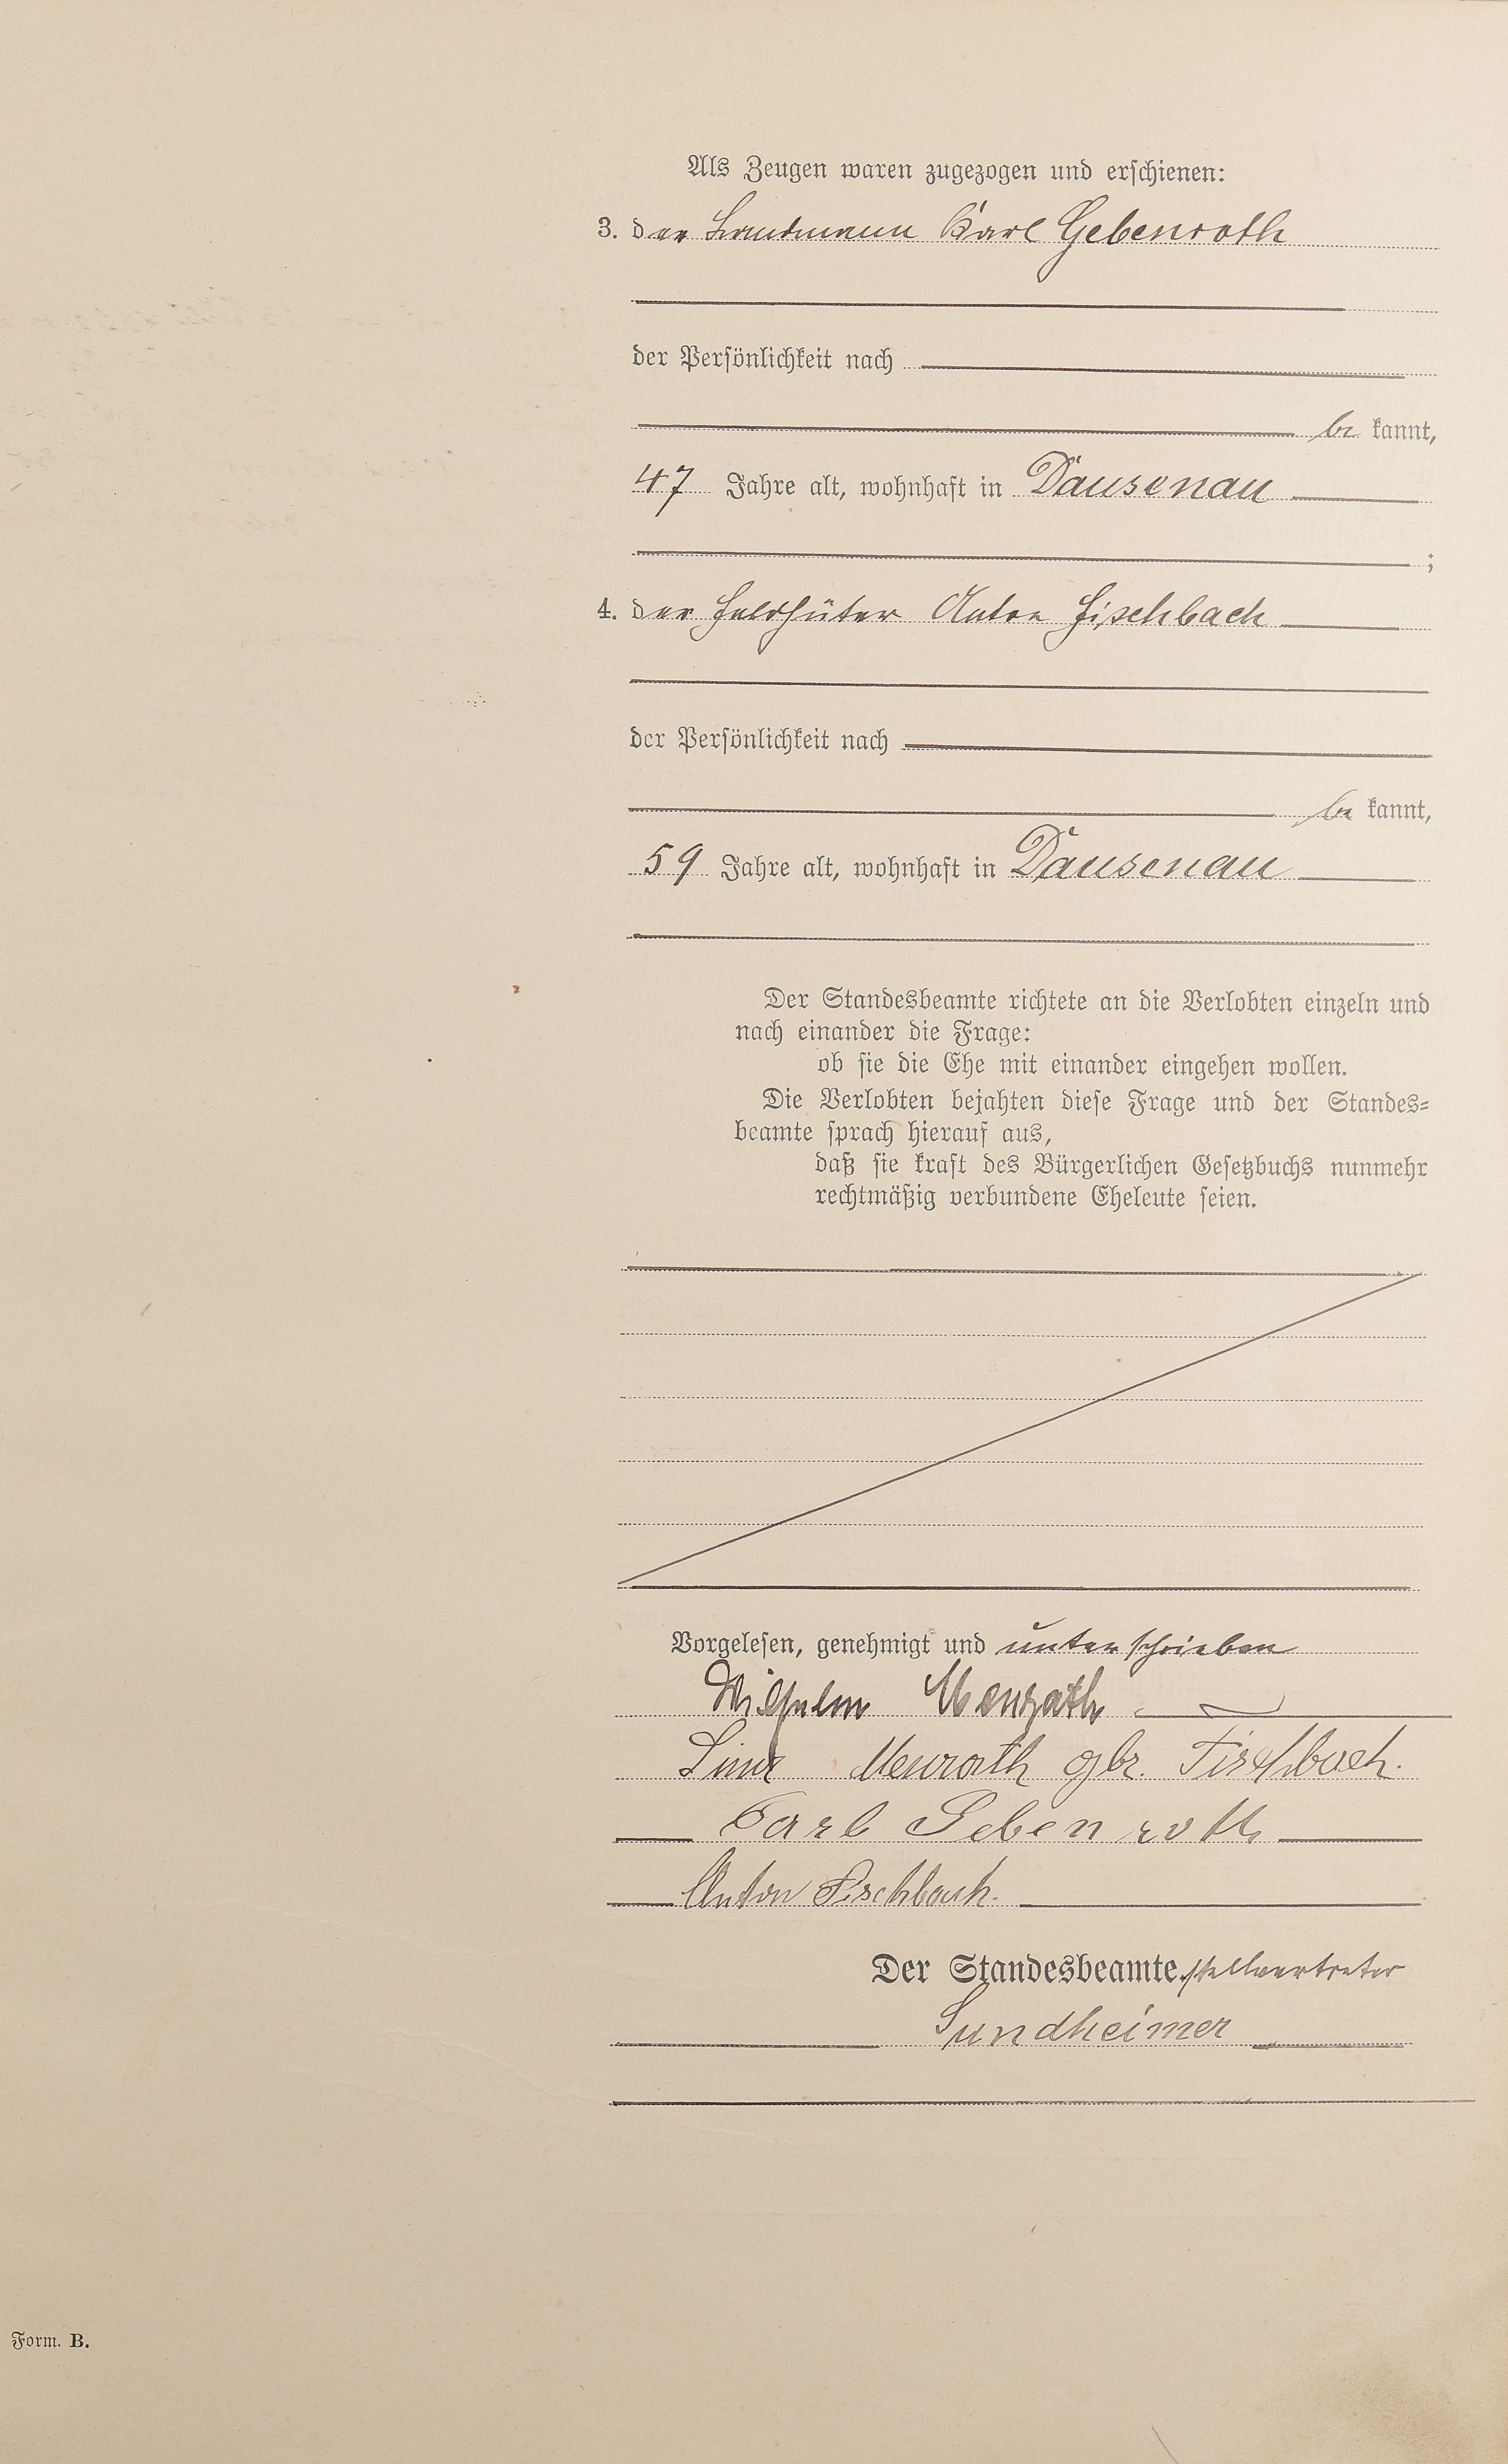 Als Zeugen waren zugezogen und erschienen:
3. der Landmann Karl Gebenroth
der Persönlichkeit nach
be kannt,
47 Jahre alt, wohnhaft in Dausenau
;
4. der Feldhüter Anton Fischbach
der Persönlichkeit nach
be kannt,
59 Jahre alt, wohnhaft in Dausenau
Der Standesbeamte richtete an die Verlobten einzeln und
nach einander die Frage:
ob sie die Ehe mit einander eingehen wollen.
Die Verlobten bejahten diese Frage und der Standes=
beamte sprach hierauf aus,
daß sie kraft des Bürgerlichen Gesetzbuchs nunmehr
rechtmäßig verbundene Eheleute seien.
Vorgelesen, genehmigt und unterschrieben
Wilhelm Menrath
Menrath gbr. Fischbach.
Carl Gebenroth
Anton Fischbach.
Der Standesbeamte. stellvertreter
Sundheimer
Form. B.